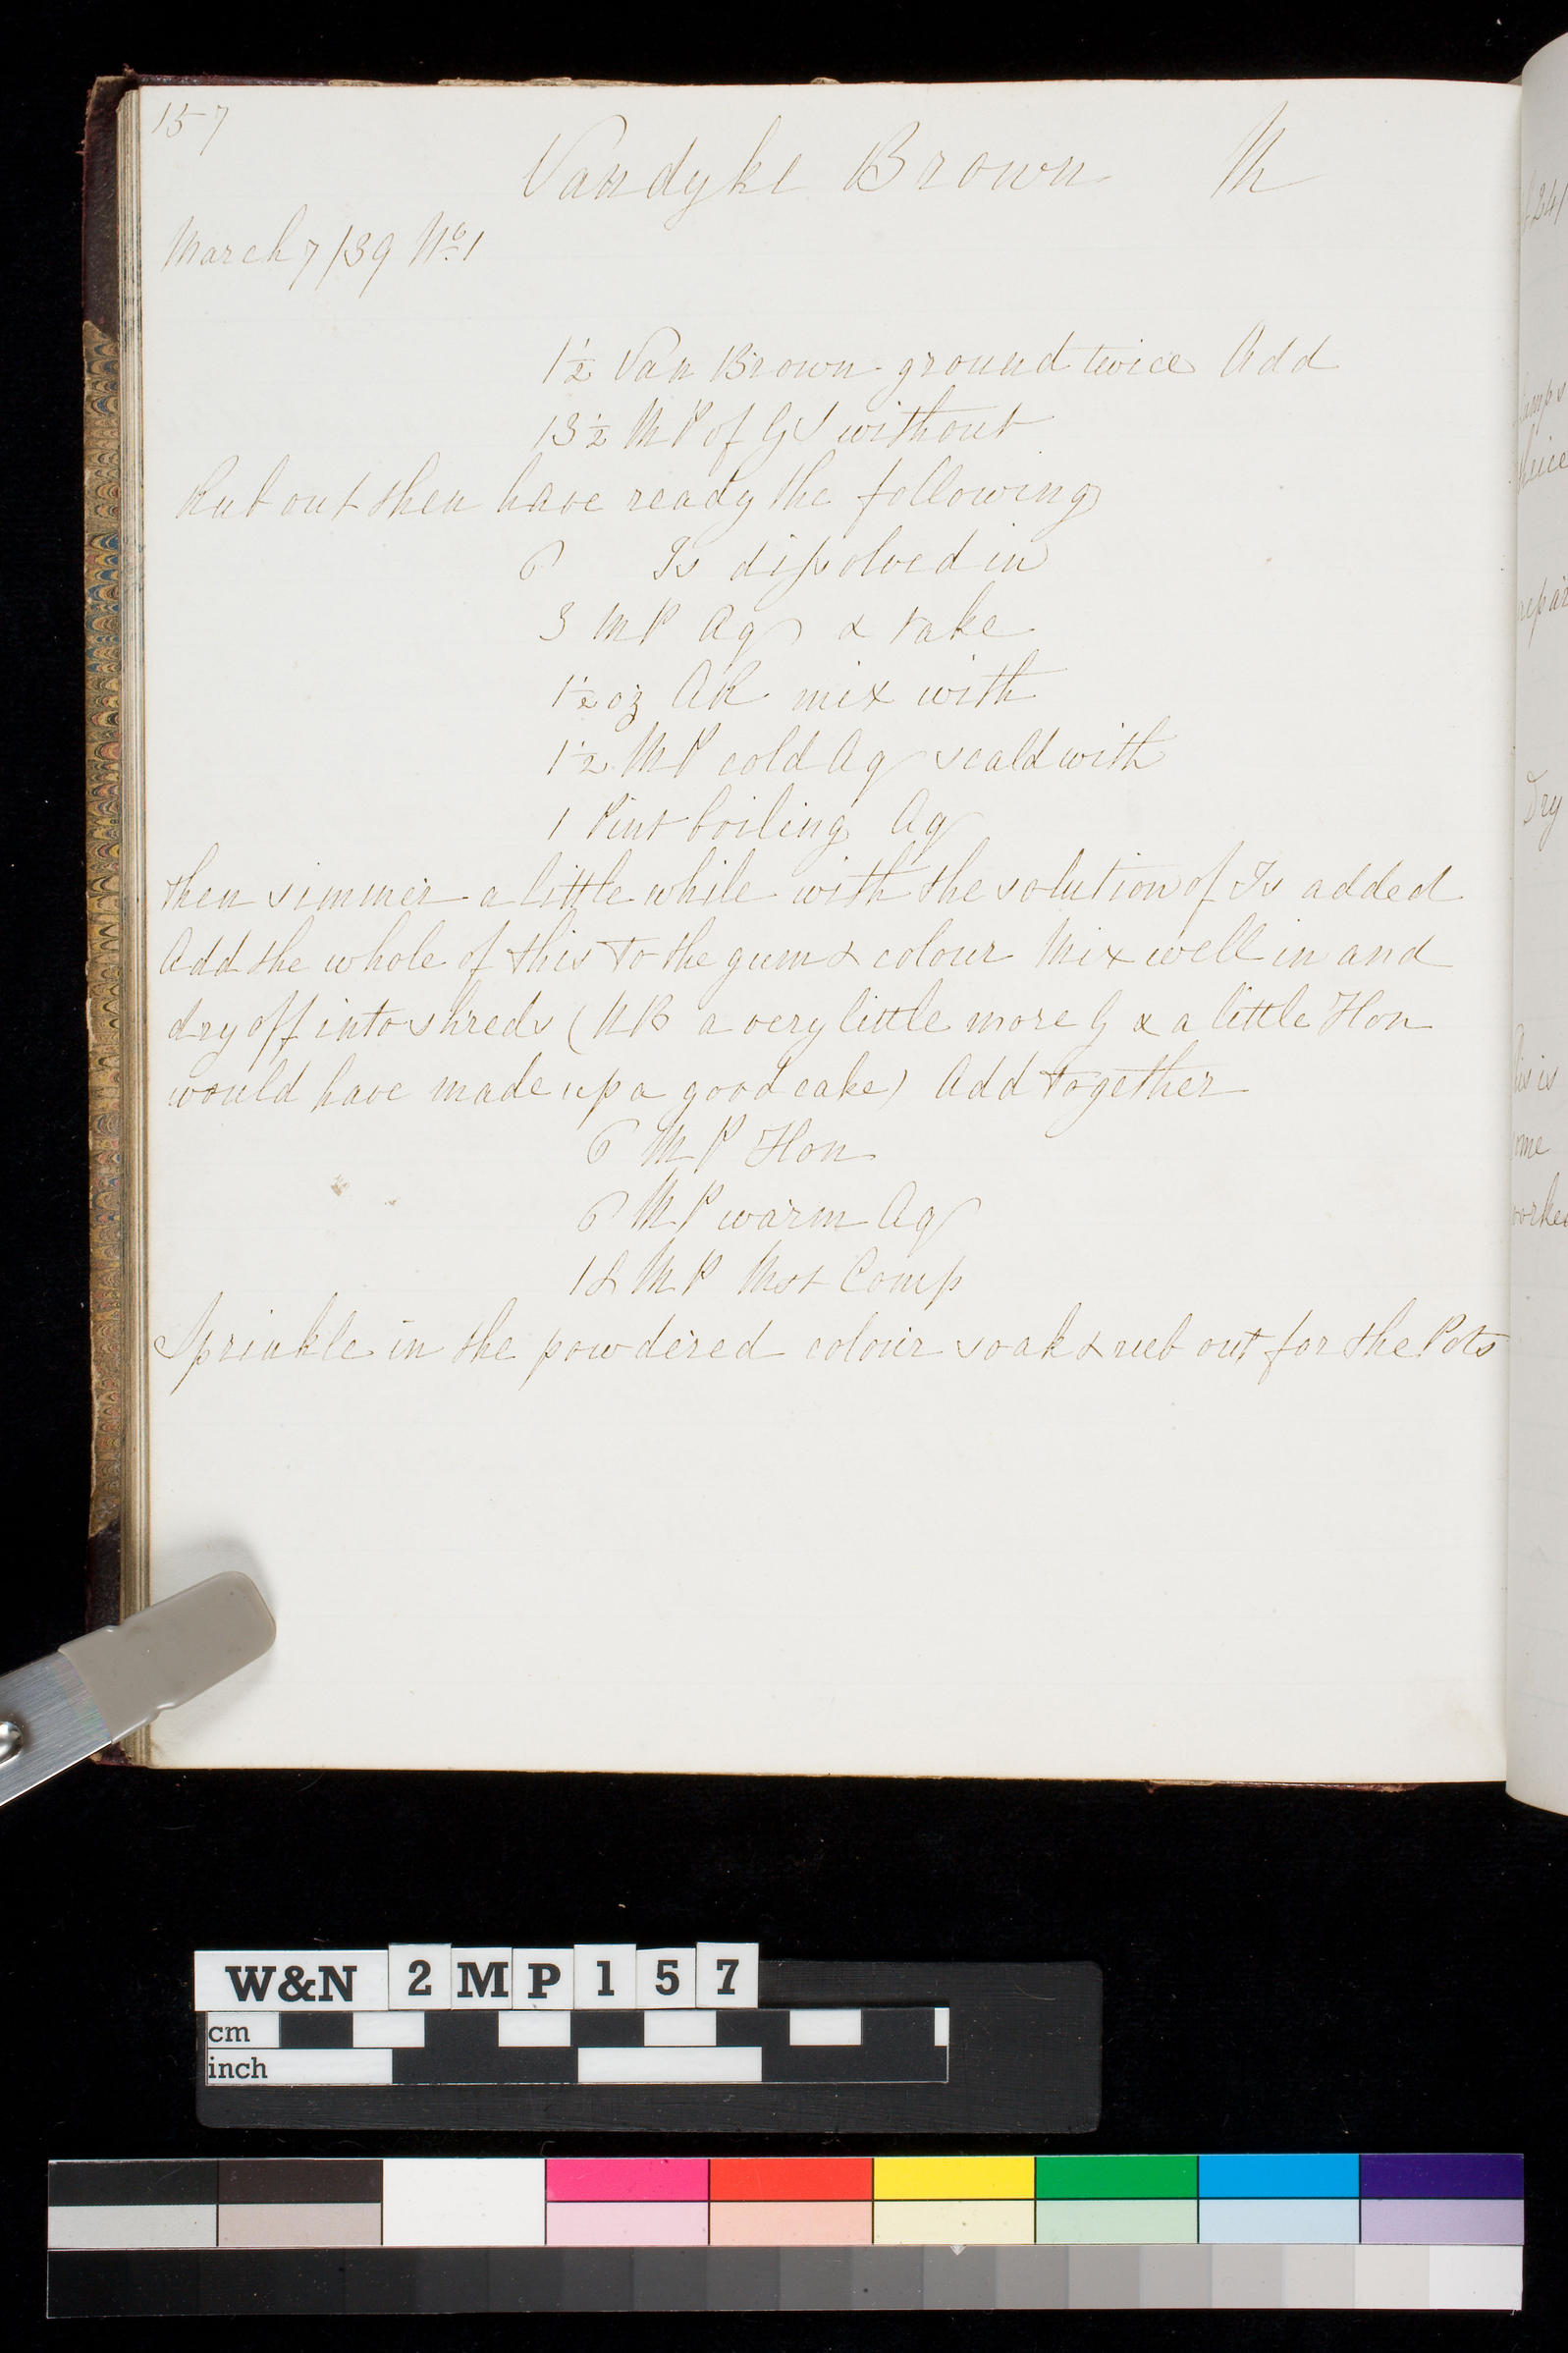 157
Vandyke Brown M
March 7/39 No. 1
1½ Van Brown ground twice Add
13½ MP of GS without
Rub out then have ready the following
6 Is dissolved in
3 MP Aq & take
1½ oz AR mix with
1½ MP cold Aq scald with
1 Pint boiling Aq
then simmer a little while with the solution of Is added
Add the whole of this to the gum & colour Mix well in and
dry off into shreds (NB a very little more G & a little Hon
would have made up a good cake) Add together
6 MP Hon
6 MP warm Aq
18 MP Mst Comp
Sprinkle in the powdered colour soak & rub out for the Pots
Dry
W&N 2MP157
cm
inch